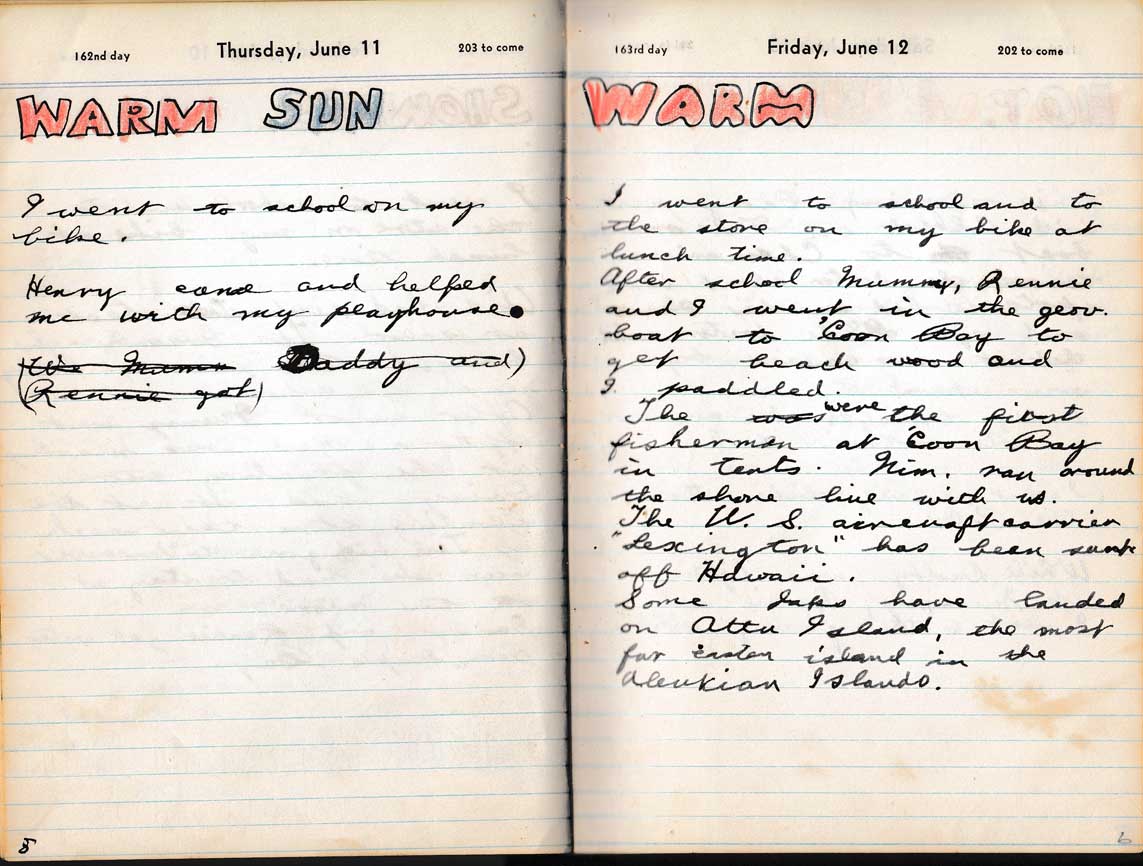 162nd day Thursday, June 11 203 to come
WARM SUN
I went to school on my
bike.
Henry came and helped
me with my playhouse.
(We Mumm Daddy and)
(Rennie got)
8
163rd day Friday, June 12 202 to come
WARM
I went to school and to
the store on my bike at
lunch time.
After school Mummy, Rennie
and I went in the gov.
boat to 'Coon Bay to
get beach wood and
I paddled.
The was were the first
fisherman at 'Coon Bay
in tents. Nim. ran around
the shore line with us.
The U. S. aircraft carrier
"Lexington" has been sunk
off Hawaii.
Some Japs have landed
on Attu Island, the most
far easten island in the
Aleukian Islands.
6